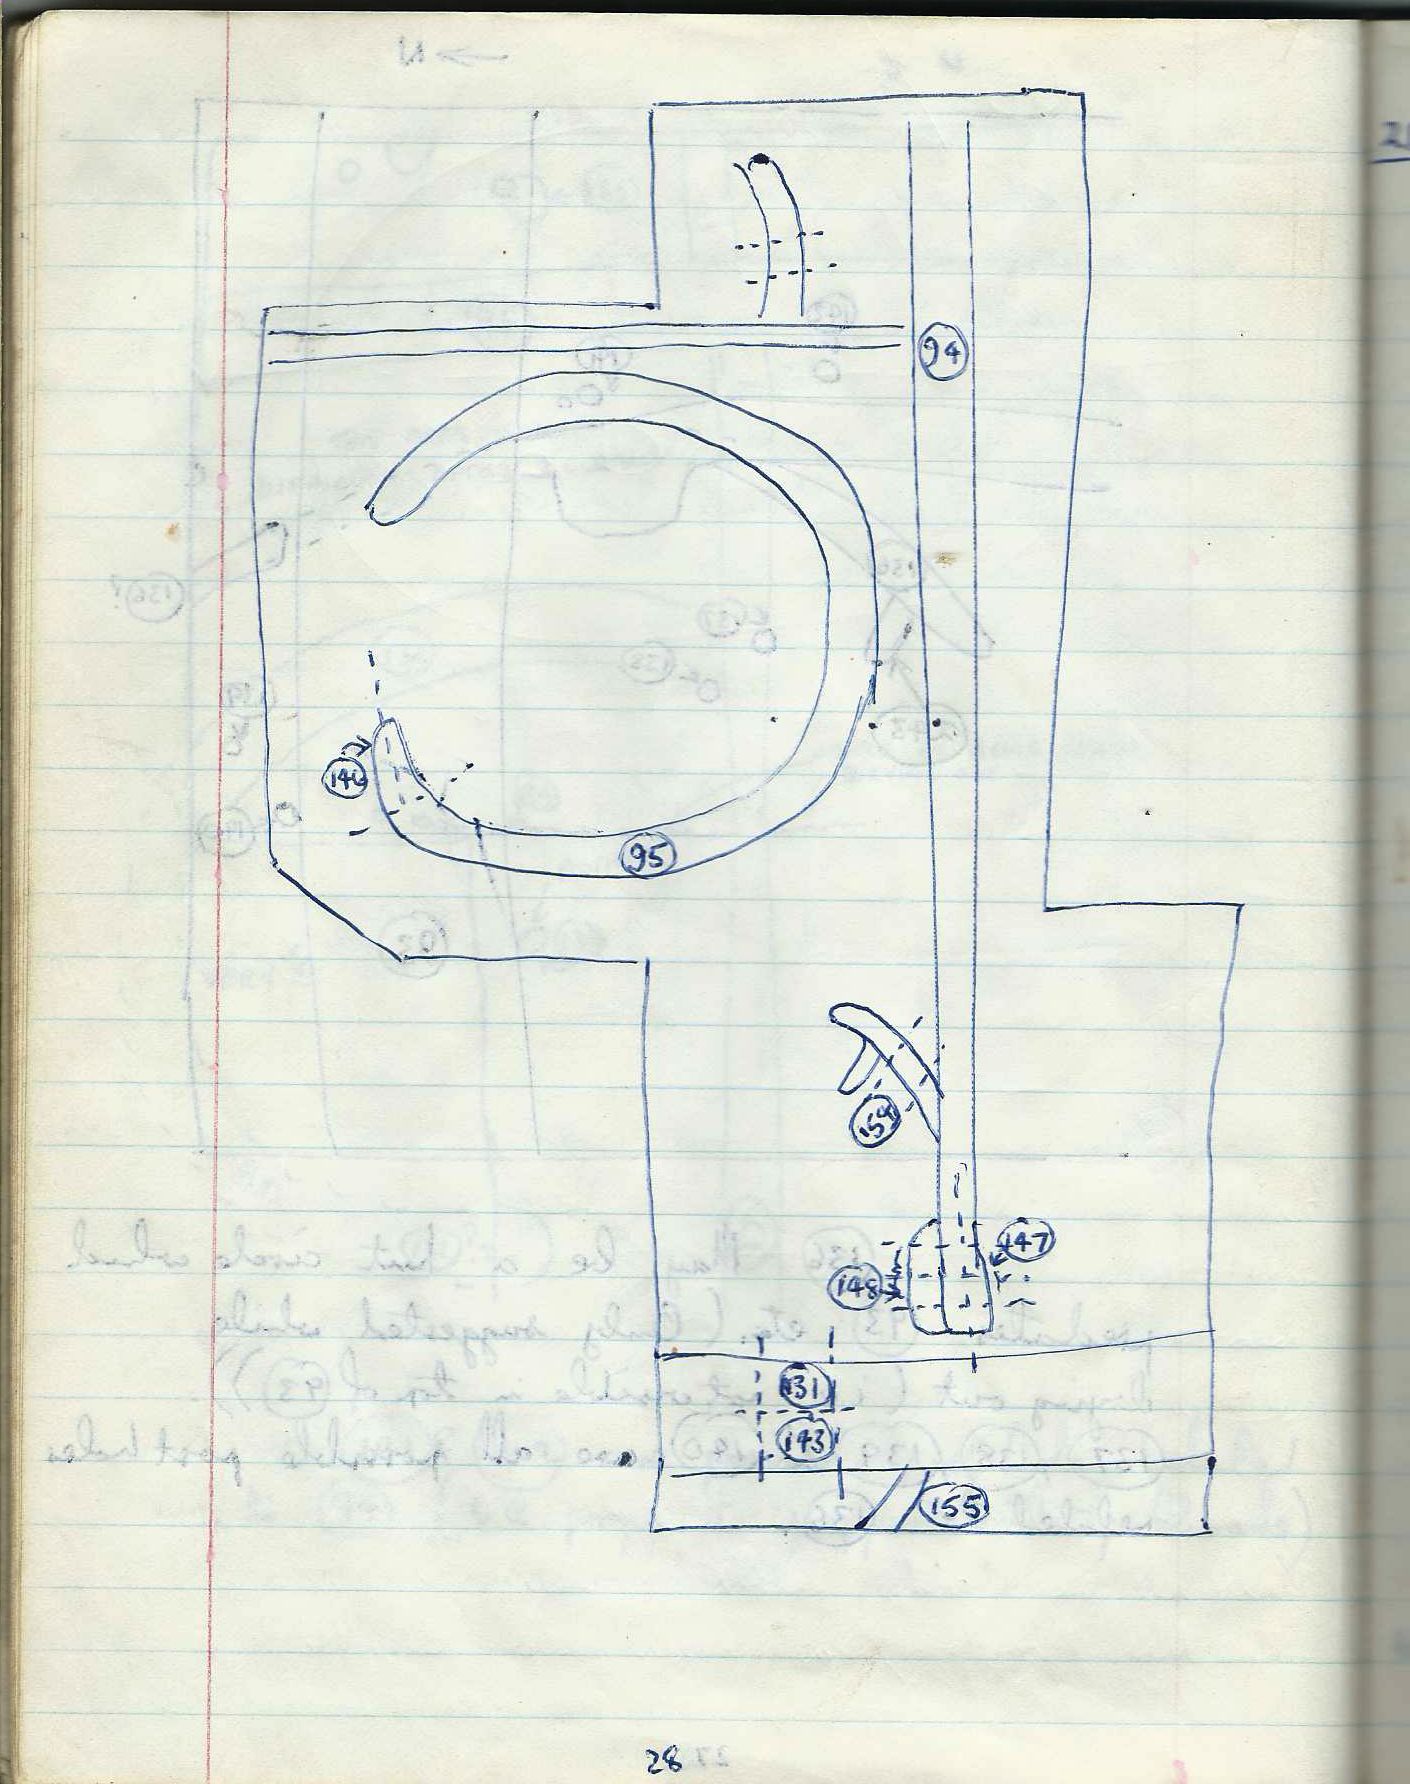 94
146
95
154
147
148
131
143
155
28